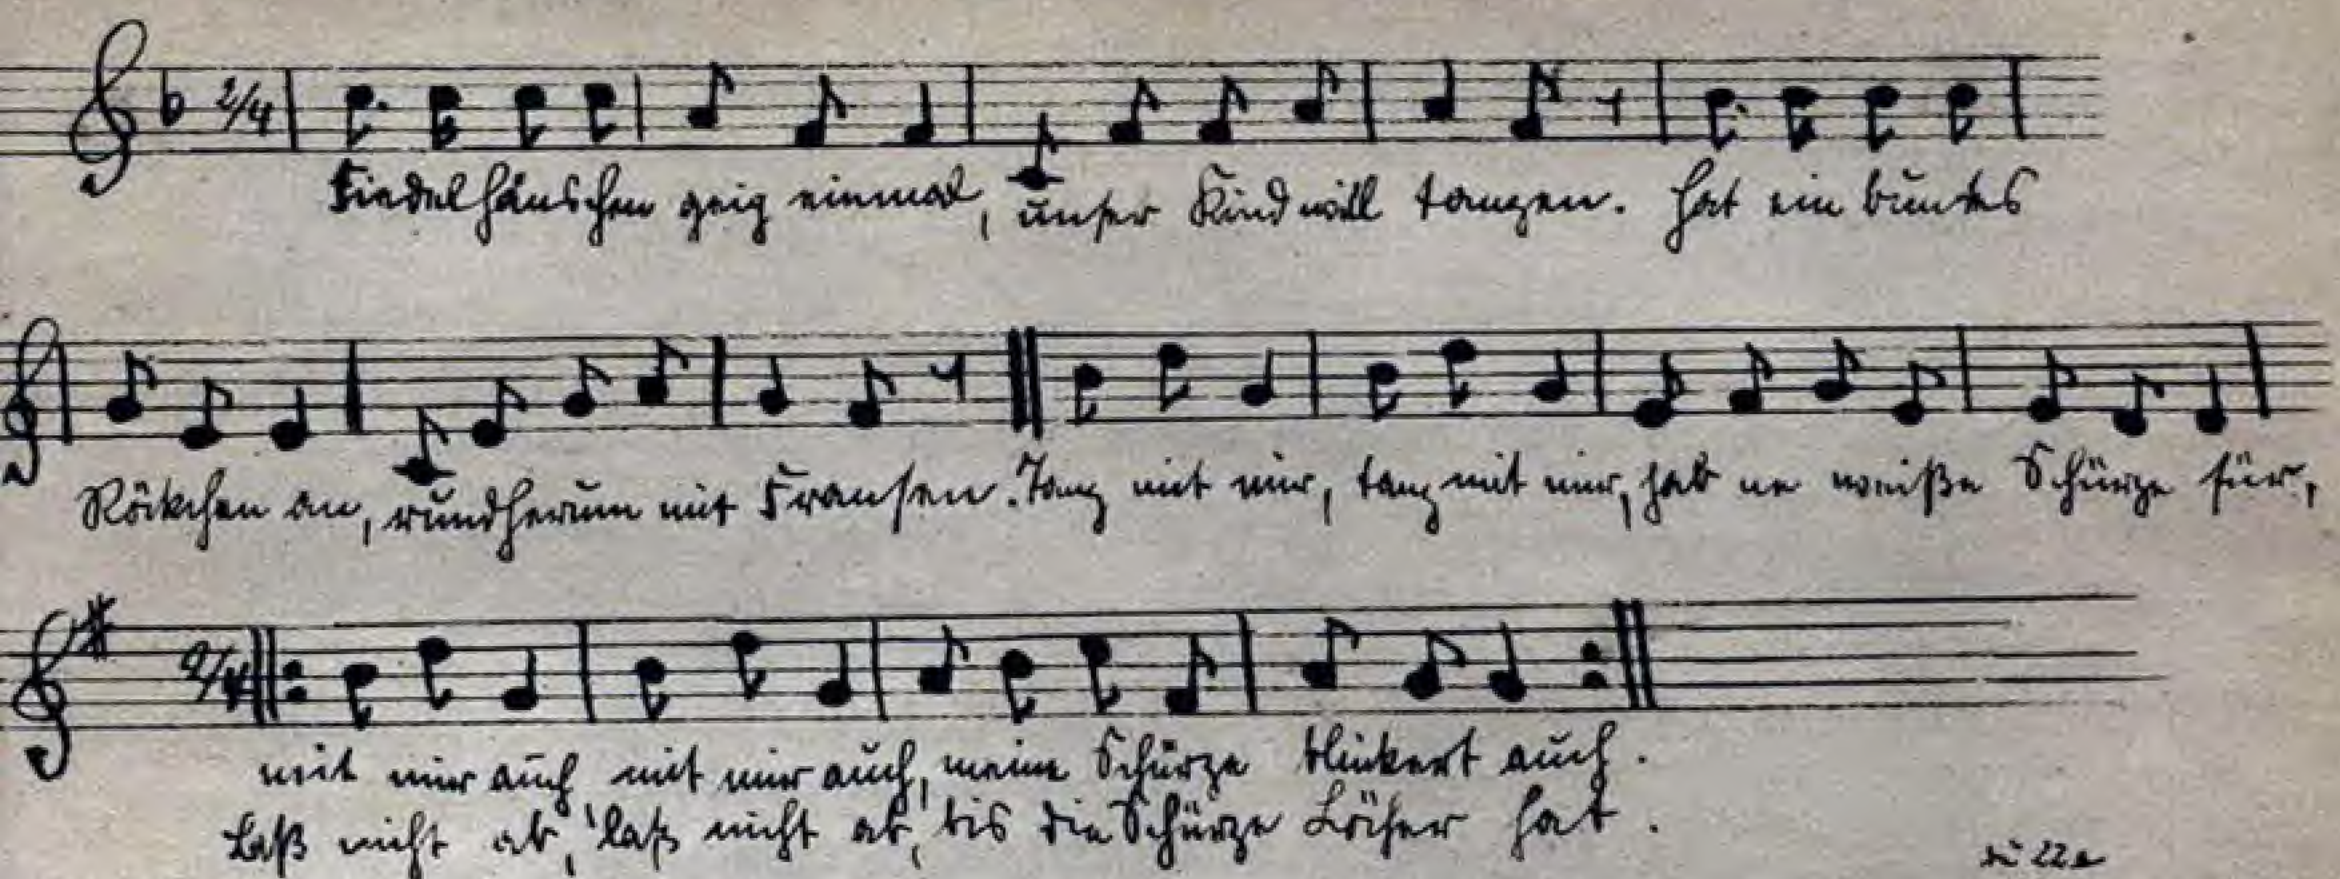 2/4
Fiedelhänschen geig einmal, unser Kind will tanzen. Hat ein buntes
Röckchen an, rundherum mit Fransen. Tanz mit mir, tanz mit mir, hab ne weiße Schürze für,
2/4
mit mir auch mit mir auch, meine Schürze blinkert auch.
Laß nicht ab, laß nicht ab, bis die Schürze Löcher hat.
22a